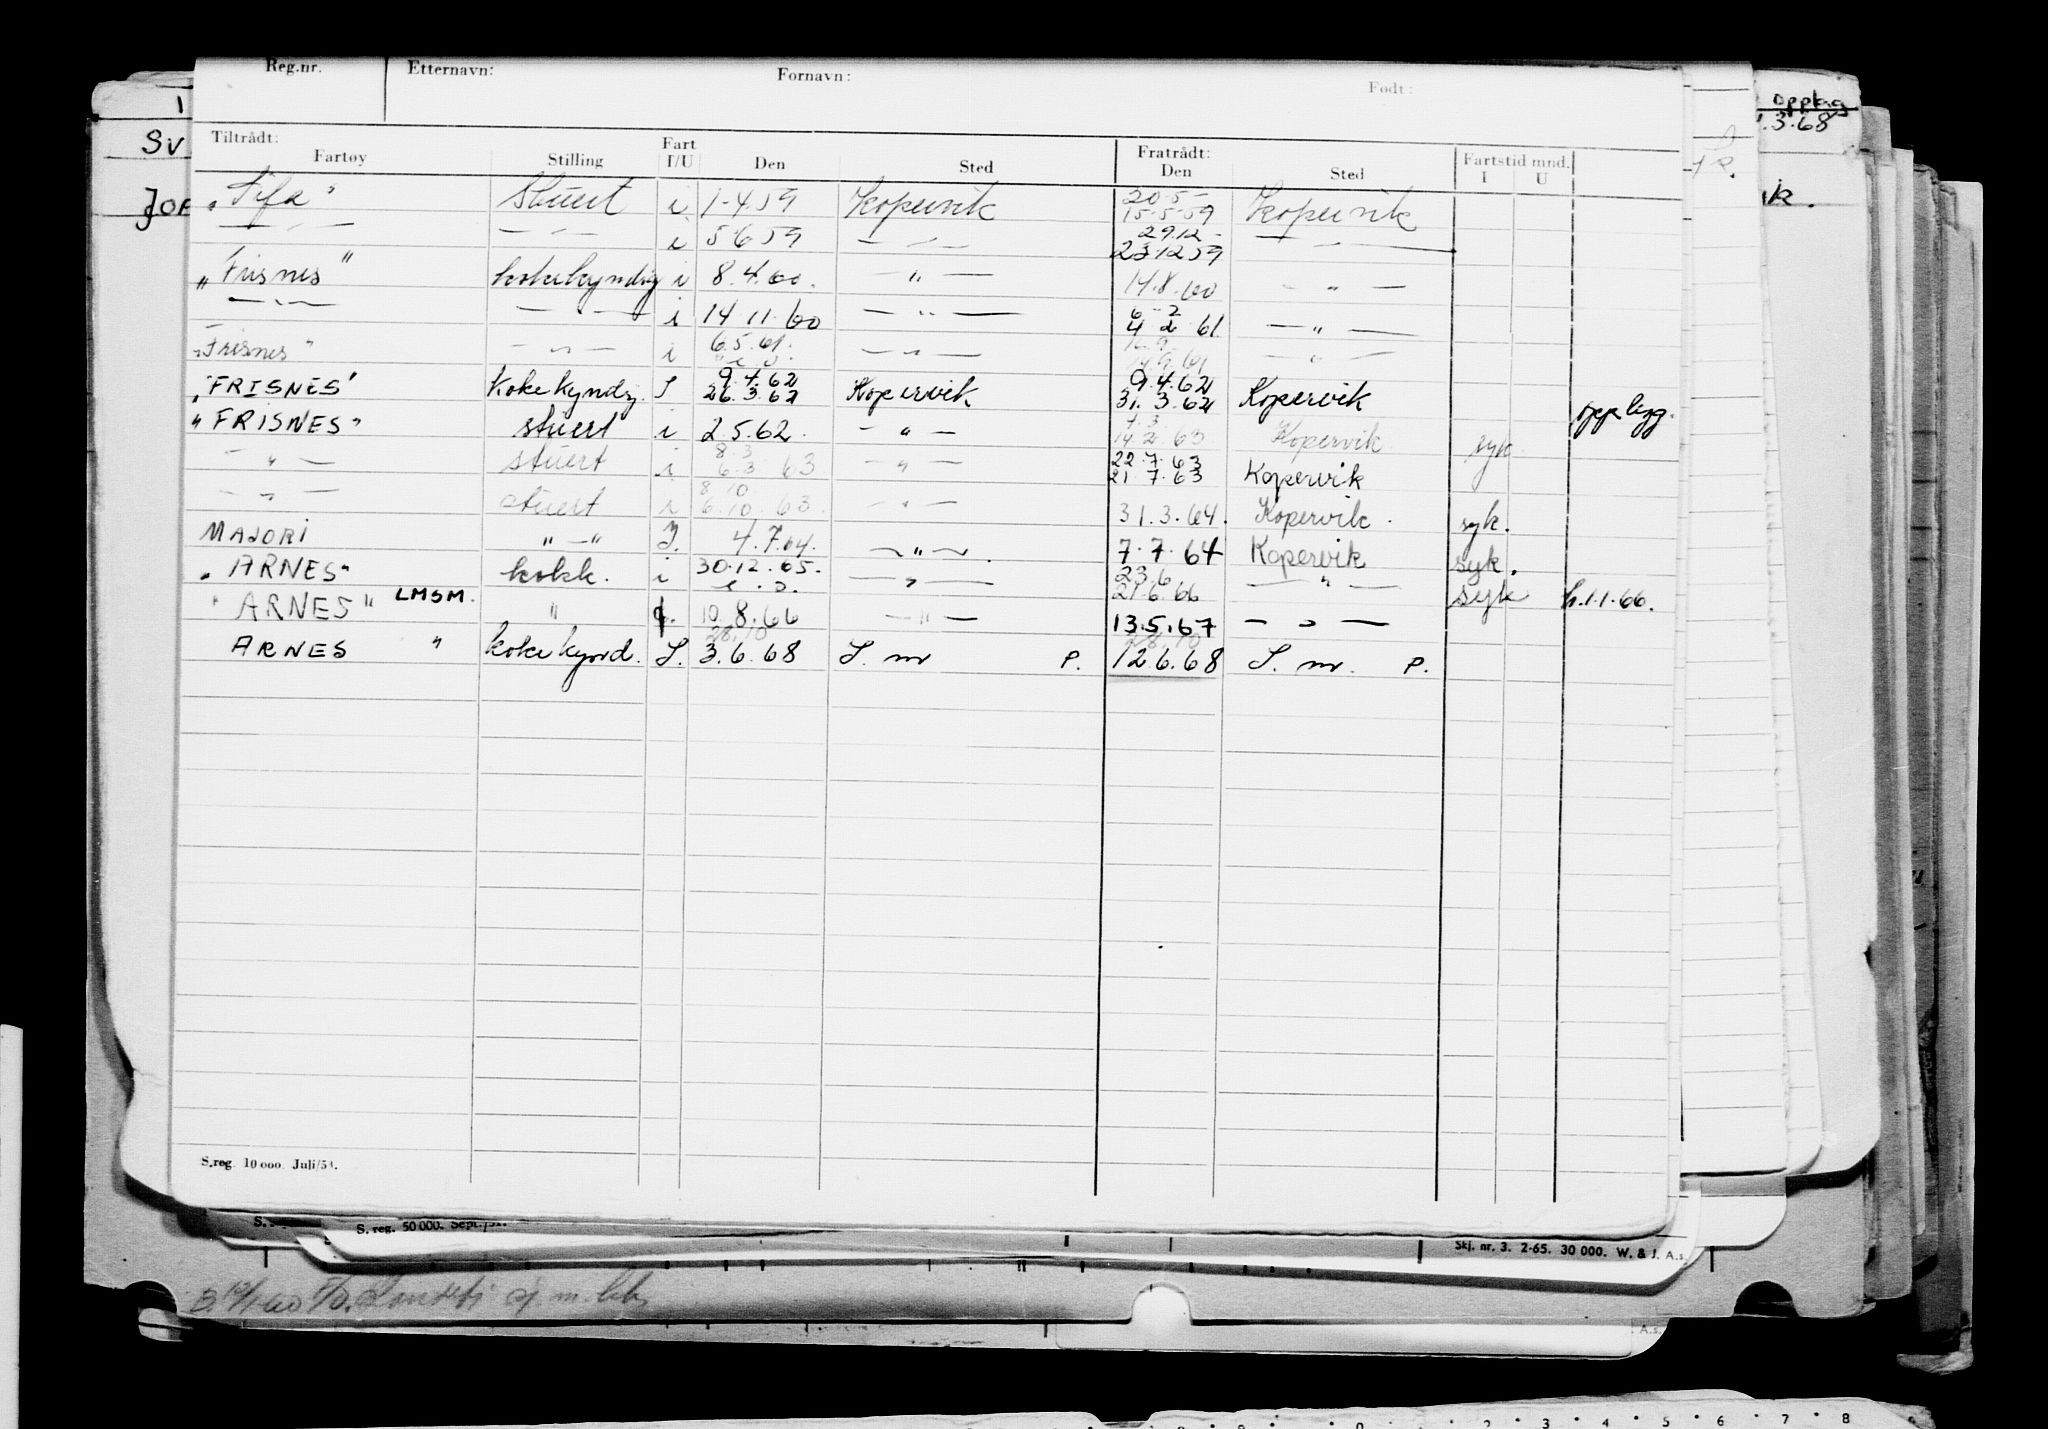 Reg.nr. Etternavn: Fornavn: Født:
Tiltrådt: Fratrådt:
Fartøy Stilling Fart I/U Den Sted Den Sted Fartstid mnd. I U
"Fifa" Stuert i 1-4.59 Kopervik 20-5- 15-5-59 Kopervik
— " — — " — i 5-6 59 — " — 29.12- 23.12.59 — " —
"Frisnes" kokekyndig i 8.4.60. — " — 14.8.60 — " —
— " — — " — i 14 11.60 — " — 6-2 4 2 61. — " —
"Frisnes" — " — i 6.5.61. — " — 16.9 — " —
"FRISNES" Kokekyndig. I 9.4.62 26.3.62 Kopervik 9.4.62 31.3.62 Kopervik opplegg.
"FRISNES" stuert i 2.5.62. — " — 14.2.63 Kopervik syk.
— " — stuert i 8.3 6.3.63 — " — 22.7.63 21.7.63 Kopervik
— " — stuert i 8.10 6.10.63. — " — 31.3.64. Kopervik. syk.
MAJORI " — " I. 4.7.64. — " — 7.7.64 Kopervik syk.
"ARNES" kokk. i 30.12.65. — " — 23.6 21.6.66 — " — syk h.1.1.66.
"ARNES" LMSM. " 10.8.66 — " — 13.5.67 — " —
ARNES " kokekynd. I. 28.10 3.6.68 S. mr P. 28.10 12.6.68 S. mr. P.
S.reg. 10 000. Juli/54.
S. reg. 50 000. Sept./52.
Skj. nr. 3. 2-65. 30 000. W. & J. A.s.
Opplag
.3.68
SV
JOR
A.s.
2 3 4 5 6 7 8